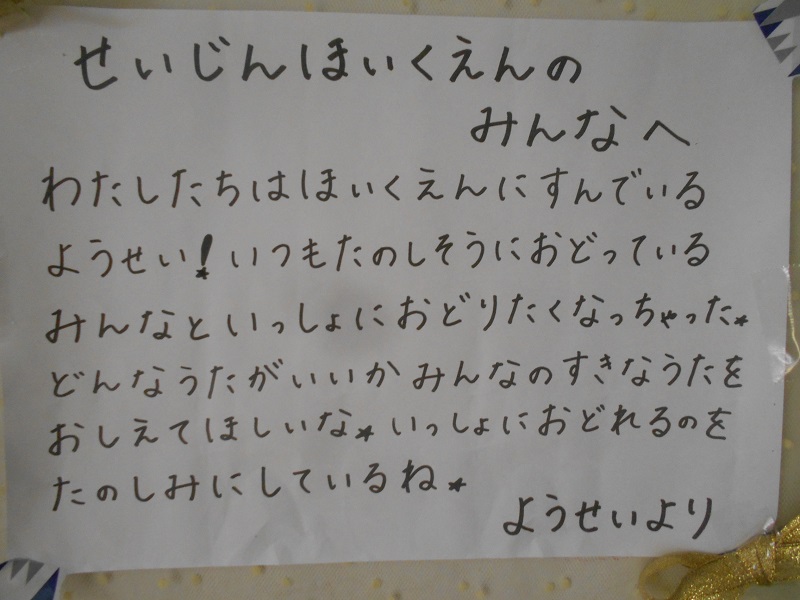 せいじんほいくえんの
みんなへ
わたしたちはほいくえんにすんでいる
ようせい！いつもたのしそうにおどっている
みんなといっしょにおどりたくなっちゃった★
どんなうたがいいかみんなのすきなうたを
おしえてほしいな★いっしょにおどれるのを
たのしみにしているね★
ようせいより